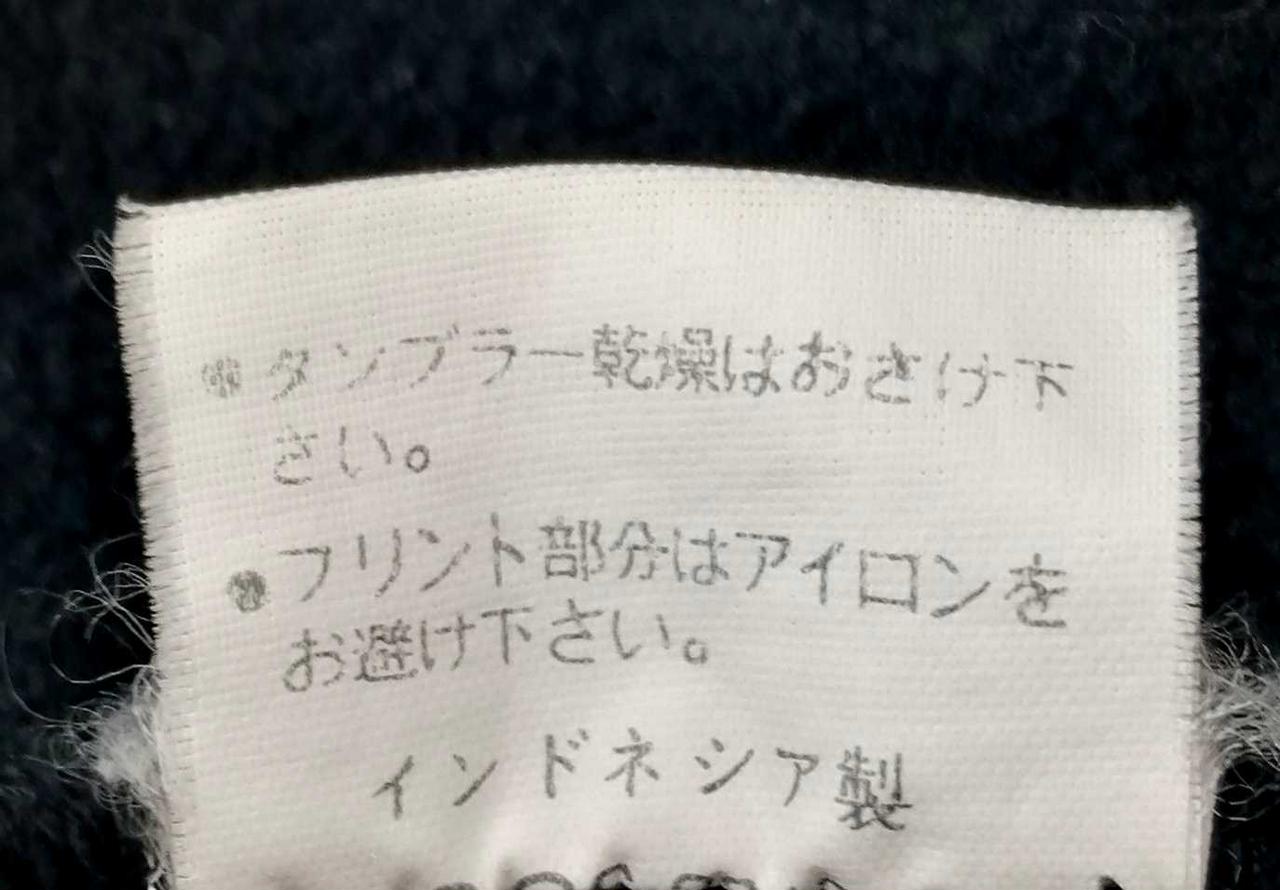 ●タンブラー乾燥はおさけ下
さい。
●プリント部分はアイロンを
お避け下さい。
インドネシア製